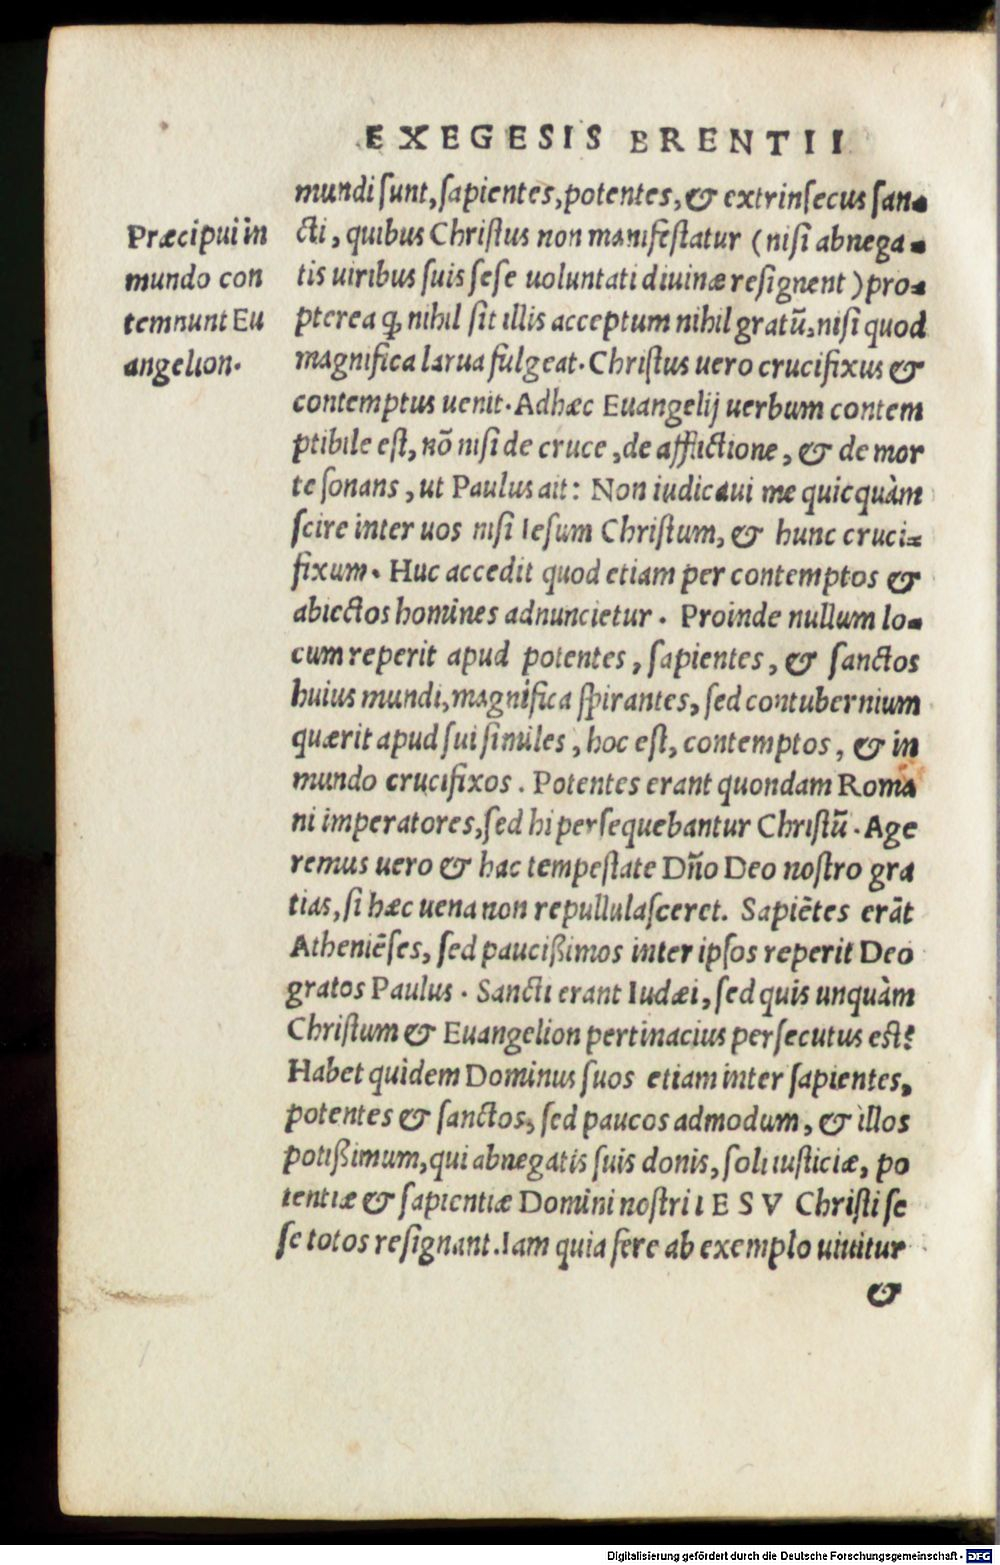 EXEGESIS BRENTII
mundi ſunt, ſapientes, potentes, & extrinſecus ſan-
Præcipui in
mundo con
temnunt Eu
angelion.
cti, quibus Chriſtus non manifeſtatur (niſi abnega-
tis uiribus ſuis ſeſe uoluntati diuinæ reſignent) pro-
pterea ꝙ nihil ſit illis acceptum nihil gratū, niſi quod
magnifica larua fulgeat. Chriſtus uero crucifixus &
contemptus uenit. Adhæc Euangelij uerbum contem
ptibile eſt, nō niſi de cruce, de afflictione, & de mor
te ſonans, ut Paulus ait: Non iudicaui me quicquàm
ſcire inter uos niſi Ieſum Chriſtum, & hunc cruci=
fixum. Huc accedit quod etiam per contemptos &
abiectos homines adnuncietur. Proinde nullum lo-
cum reperit apud potentes, ſapientes, & ſanctos
huius mundi, magnifica ſpirantes, ſed contubernium
quærit apud ſui ſimiles, hoc eſt, contemptos, & in
mundo crucifixos. Potentes erant quondam Roma
ni imperatores, ſed hi perſequebantur Chriſtū. Age
remus uero & hac tempeſtate Dño Deo noſtro gra
tias, ſi hæc uena non repullulaſceret. Sapiētes erāt
Atheniēſes, ſed pauciſſimos inter ipſos reperit Deo
gratos Paulus. Sancti erant Iudæi, ſed quis unquàm
Chriſtum & Euangelion pertinacius perſecutus eſt?
Habet quidem Dominus ſuos etiam inter ſapientes,
potentes & ſanctos, ſed paucos admodum, & illos
potiſſimum, qui abnegatis ſuis donis, ſoli iuſticiæ, po
tentiæ & ſapientiæ Domini noſtri IESV Chriſti ſe
ſe totos reſignant. Iam quia fere ab exemplo uiuitur
&
Digitalisierung gefördert durch die Deutsche Forschungsgemeinschaft - DFG